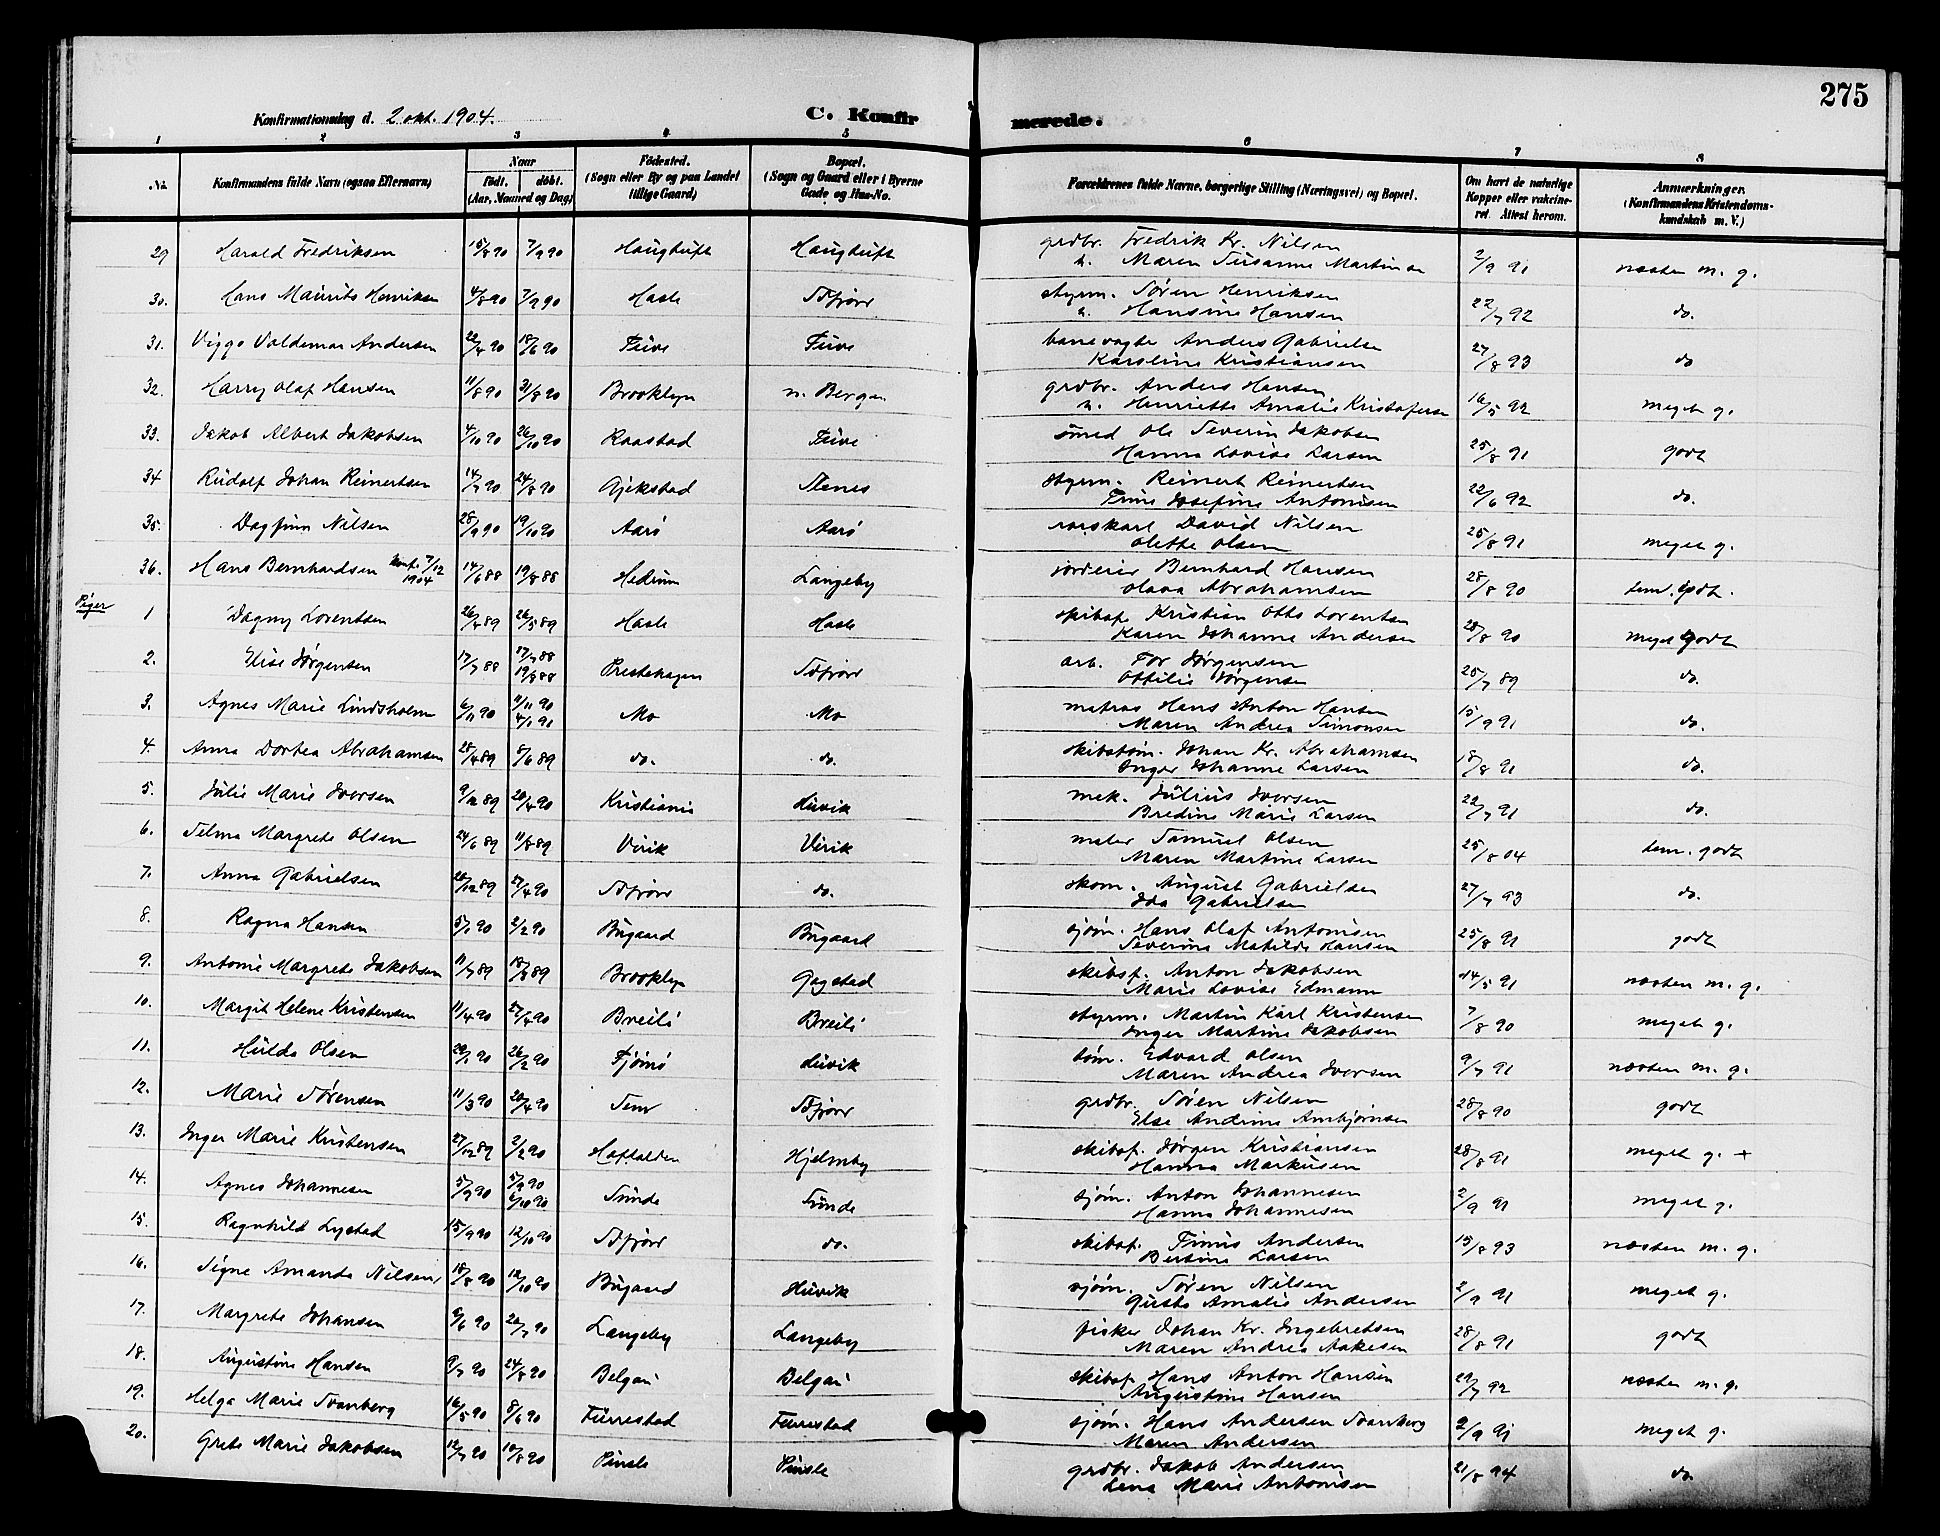 275
Konfirmationsdag d. 2 okt. 1904.
C. Konfirmerede.
1 2 3 4 5 6 7 8
No. Konfirmandens fulde Navn (ogsaa Efternavn) Naar født. døbt. (Aar, Maaned og Dag) Födested. (Sogn eller By og paa Landet tillige Gaard) Bopæl. (Sogn og Gaard eller i Byerne Gade og Hus-No. Forældrenes fulde Navne, borgerlige Stilling (Næringsvei) og Bopæl. Om havt de naturlige Kopper eller vakcineret. Attest herom. Anmærkninger. (Konfirmandens Kristendomskundskab m. V.)
29 Harald Fredriksen 15/8 90 7/9 90 Haugtuft Haugtuft grdbr. Fredrik Kr. Nilsen
h. Maren Susanne Martinsen 2/9 91 næsten m. g.
30. Hans Maurits Henriksen 4/8 90 7/9 90 Hasle Sdfjord styrm. Sören Henriksen
h. Hansine Hansen 22/7 92 do.
31. Viggo Valdemar Andersen 22/4 90 18/6 90 Tuve Tuve banevogte Anders Gabrielsen
Karoline Kristiansen 27/8 93 do
32. Harry Olaf Hansen 11/8 90 31/8 90 Brooklyn n. Bergan grdbr. Anders Hansen
h. Henriette Amalie Kristofersen 16/5 92 meget g.
33. Jakob Albert Jakobsen 4/10 90 26/10 90 Raastad Tuve smed Ole Severin Jakobsen
Hanna Lovise Larsen 25/8 91 godt
34 Rudolf Johan Reinertsen 14/7 90 24/8 90 Gjekstad Stenes styrm. Reinert Reinertsen
Trine Josefine Antonisen 22/6 92 do.
35. Dagfinn Nilsen 28/9 90 19/10 90 Aarö Aarö David Nilsen
Olette Olsen 25/8 91 meget g.
36. Hans Bernhardsen konf. 7/12 1904 14/6 88 19/8 88 Hedrum Langeby jordeier Bernhard Hansen
Olava Abrahamsen 28/8 90 tem. godt.
Piger
1 Dagny Lorentsen 26/4 89 26/5 89 Hasle Hasle skibsf. Kristian Otto Lorentsen
Karen Johanne Andersen 28/8 90 meget godt
2. Elise Jørgensen 17/7 88 17/7 88 19/8 88 Prestehagen Sdfjord arb. Tor Jørgensen
Ottilie Jørgensen 25/7 89 do.
3. Agnes Marie Lindsholm 6/11 90 11/11 90 4/1 91 Mo Mo matros Hans Anton Hansen
Maren Andrea Simonsen 15/9 91 do.
4. Anna Dortea Abrahamsen 28/4 89 5/6 89 do. do. skibstöm. Johan Kr. Abrahamsen
Inger Johanne Larsen 18/8 91 do.
5. Julie Marie Iversen 9/12 89 20/4 90 Kristiania Huvik mek. Julius Iversen
Bredine Marie Larsen 22/7 91 do.
6. Selma Margrete Olsen 24/6 89 11/8 89 Virik Virik maler Samuel Olsen
Maren Martine Larsen 25/8 04 tem. godt
7. Anna Gabrielsen 28/12 89 27/4 90 Sdfjord do. skom. August Gabrielsen
Ida Gabrielsen 27/7 93 do.
8. Ragna Hansen 5/1 90 2/2 90 Bugaard Bugaard sjöm. Hans Olaf Antonisen
Severine Matilde Hansen 25/8 91 godt
9. Antonie Margrete Jakobsen 11/7 89 18/8 89 Brooklyn Gogstad skibsf. Anton Jakobsen
Marie Lovise Edmann 14/5 91 næsten m. g.
10. Margit Helene Kristensen 11/4 90 27/4 90 Breili Breili styrm. Martin Karl Kristensen
Inger Martine Jakobsen 7/8 90 meget g.
11. Hulda Olsen 29/1 90 26/2 90 Tjömö Huvik töm. Edvard Olsen
Maren Andrea Iversen 9/7 91 næsten m. g.
12. Marie Sørensen 11/3 90 20/4 90 Tem Sdfjord grdbr. Søren Nilsen
Else Andrine Arnbjørnsen 28/8 90 godt
13. Inger Marie Kristensen 27/12 89 2/2 90 Haftalden Hjelmby skibsf. Jörgen Kristiansen
Hanna Markusen 28/8 91 meget g. +
14. Agnes Johannesen 5/9 90 5/9 90 6/10 90 Sunde Sunde sjöm. Anton Johannesen
Hanna Johannesen 2/9 91 meget g.
15. Ragnhild Lystad 15/9 90 12/10 90 Sdfjord do. skibsf. Timus Andersen
Bertine Larsen 15/8 93 næsten m. g.
16. Signe Amanda Nilsen 18/8 90 12/10 90 Bugaard Huvik sjöm. Sören Nilsen
Gusta Amalie Andersen 2/9 91 meget g.
17. Margrete Johansen 9/6 90 20/7 90 Langeby Langeby fisker Johan Kr. Ingebretsen
Maren Andrea Aakesen 28/8 91 godt
18. Augustine Hansen 9/7 90 24/8 90 Belgau Belgau skibsf. Hans Anton Hansen
Augustine Hansen 29/7 92 næsten m. g.
19. Helga Marie Svanberg 16/5 90 8/6 90 Furrestad Furrestad sjöm. Hans Andersen Svanberg
Maren Andersen 2/9 91 meget g.
20. Grete Marie Jakobsen 12/7 90 10/8 90 Pinsle Pinsle grdbr. Jakob Andersen
Lena Marie Antonisen 21/8 94 do.